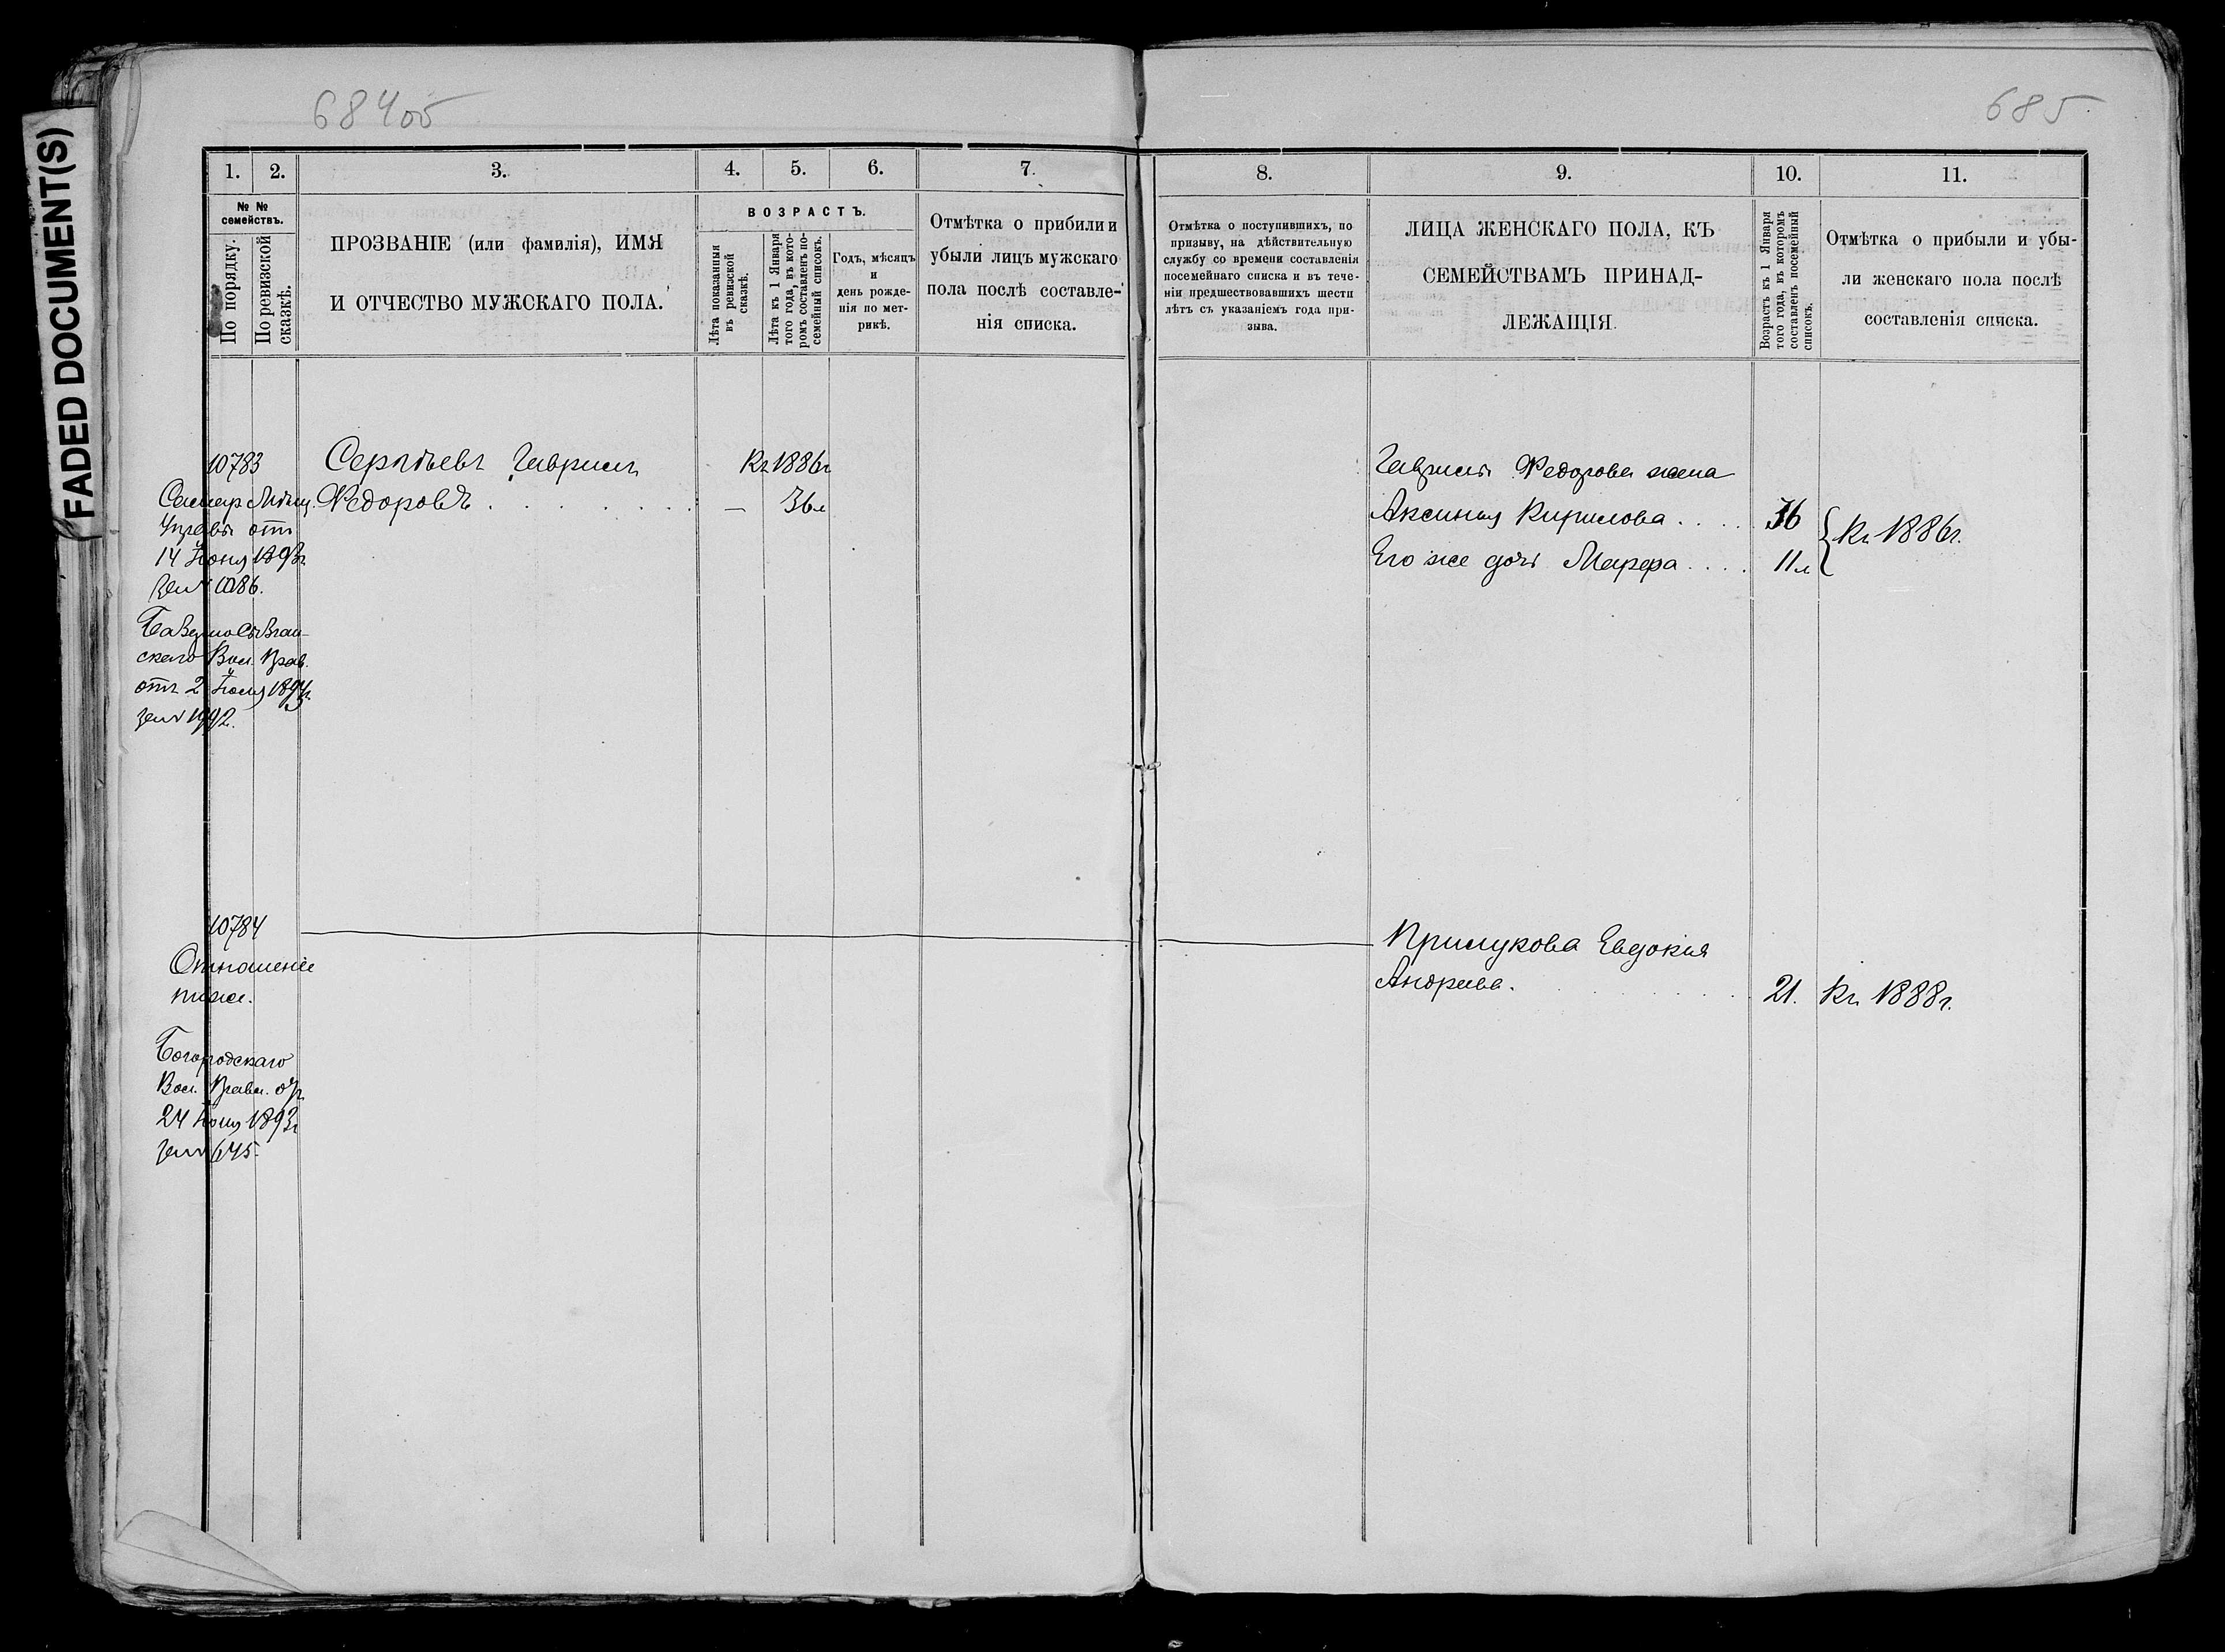 FADED DOCUMENT(S)
684об
685
1.
2.
3.
4.
5.
6.
7.
№ №
семействъ.
По порядку.
По ревизской
сказкѣ.
ПРОЗВАНІЕ (или фамилія), ИМЯ
И ОТЧЕСТВО МУЖСКАГО ПОЛА.
ВОЗРАСТЪ.
Лѣта показанныя
въ ревизской
сказкѣ.
Лѣта къ 1 Января
того года, въ кото-
ромъ составленъ по-
семейный списокъ.
Годъ, мѣсяцъ
и
день рожде-
нія по мет-
рикѣ.
Отмѣтка о прибыли и
убыли лицъ мужскаго
пола послѣ составле-
нія списка.
8.
9.
10.
11.
Отмѣтка о поступившихъ, по
призыву, на дѣйствительную
службу со времени составленія
посемейнаго списка и въ тече-
ніи предшествовавшихъ шести
лѣтъ съ указаніемъ года при-
зыва.
ЛИЦА ЖЕНСКАГО ПОЛА, КЪ
СЕМЕЙСТВАМЪ ПРИНАД-
ЛЕЖАЩІЯ.
Возрастъ къ 1 Января
того года, въ которомъ
составленъ посемейный
списокъ.
Отмѣтка о прибыли и убы-
ли женскаго пола послѣ
составленія списка.
10783
Самар. Мѣщ.
Управы отъ
14 Іюня 1893г.
за №
Вол. Прав.
отъ 2 Іюля
за № 1992.
Сергѣевъ Гаврилъ
Къ 1886г
Федоровъ
— 36л
Гаврилы Федорова жена
Аксинья Кирилова 36
Его же дочь Марфа 11л
Къ 1886г.
10784
Отношеніе
тоже.
Богородскаго
Вол. Правл. отъ
24 Іюня 1893г
за № 645
Прилукова Евдокія
Андреева. 21. Къ 1888г.